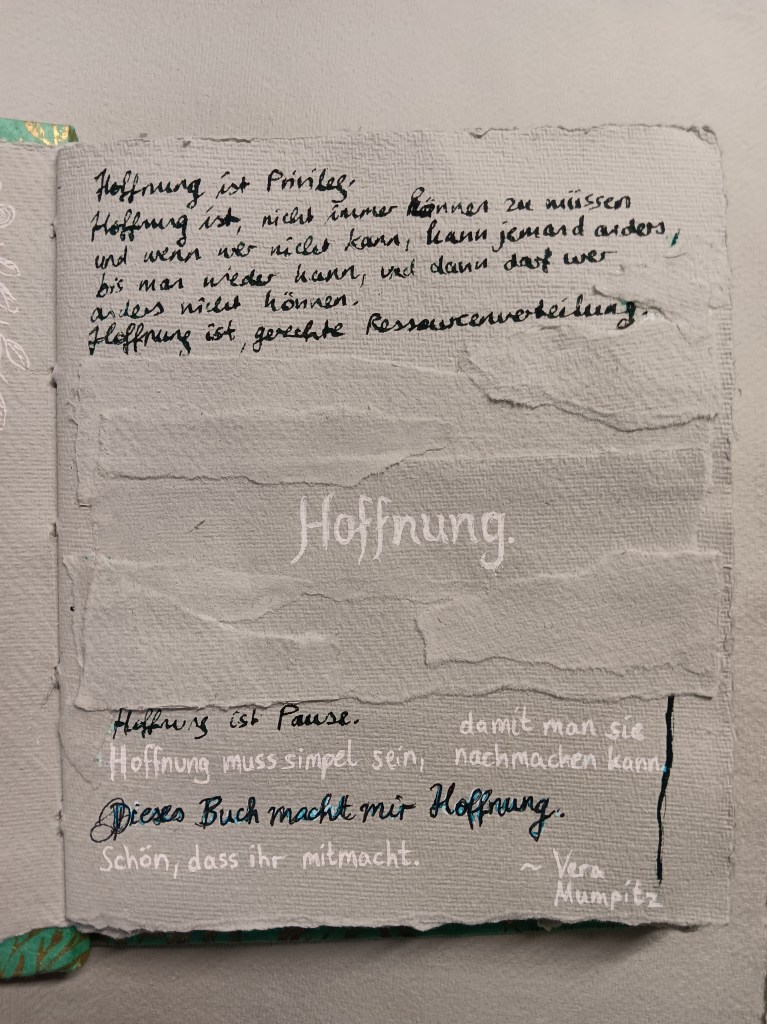 Hoffnung ist Privileg.
Hoffnung ist, nicht immer können zu müssen
und wenn wer nicht kann, kann jemand anders,
bis man wieder kann, und dann darf wer
anders nicht können.
Hoffnung ist, gerechte Ressourcenverteilung.
Hoffnung.
Hoffnung ist Pause.
Hoffnung muss simpel sein, damit man sie
nachmachen kann.
Dieses Buch macht mir Hoffnung.
Schön, dass ihr mitmacht.
~ Vera
Mumpitz